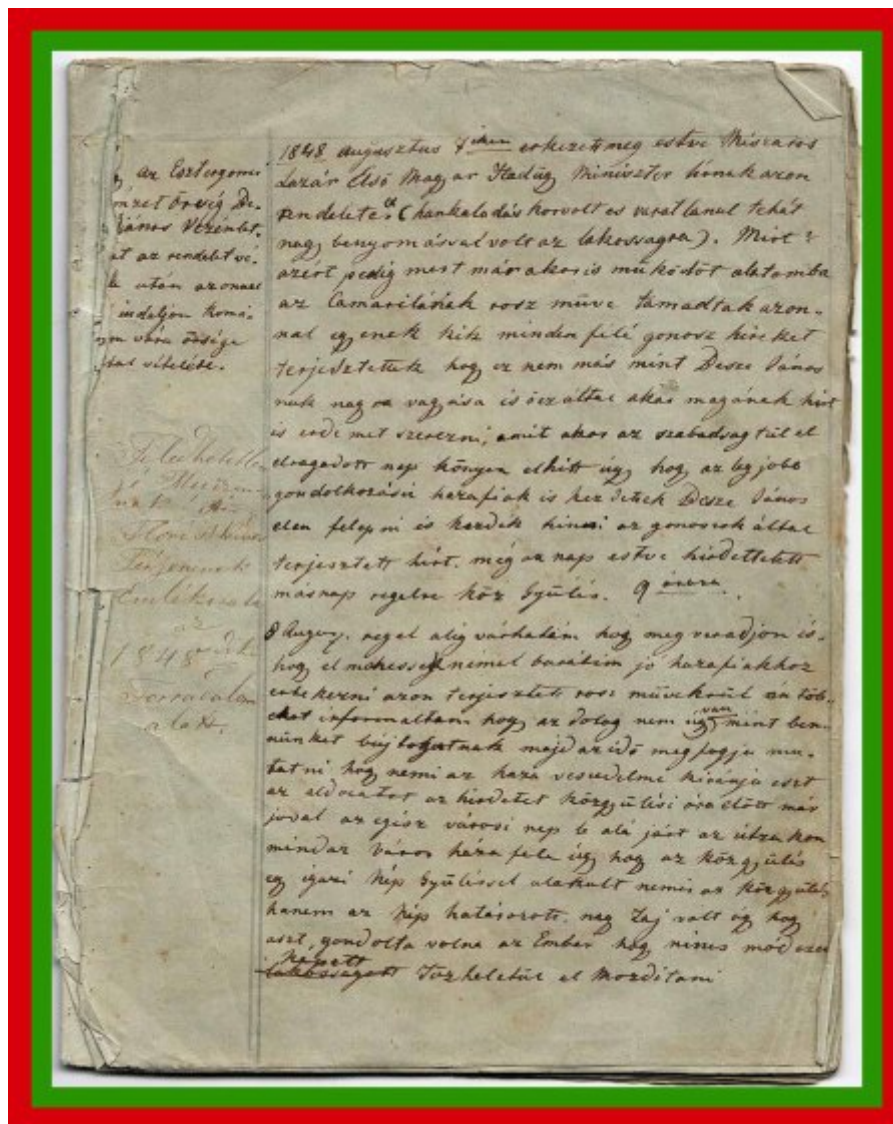 az Esztergomi
nemzet Örség De-
János Vezénlet.
at az rendelet vé.
le után azonnal
induljon Komá-
rom vára őrsége
által vételére.
1848
alatt.
1848 Augusztus 7iken erkezett meg estve Mészaros
Lazár Elsö Magyar Hadüg Miniszter Urnak azon
rendelete. ( hankaladás korvolt es varatlanul tehát
nagy benyomással volt az lakossagra). Mirt?
azért pedig mert már akor is müködöt alatomba
az Camarillának rosz müve támadtak azon-
nal egyenek kik minden felé gonosz hireket
terjesztettek hogy ez nem más mint Desze János
nak nagyra vagyása is ő ez által akar magának hirt
is erdemet szerezni, amit akor az szabadság tül el
elragadott nep könyen elhitt úgy hogy az leg jobb
gondolkozásu hazafiak is kezdetek Desze János
elen felepni is kezdék hinni az gonoszok által
terjesztett hirt. még az nap estve hirdettetett
másnap regelre köz Gyülés. 9 órára.
8 Augusz. regel alig várhatám hogy meg viradjon is.
hogy el mehessek némel barátim jó hazafiakhoz
ertekezni azon terjesztett rosz müvekrül én töb-
eket informáltam hogy az dolog nem úgy van mint ben-
nünket bujtogatnak majd az idö meg fogja mu-
tatni hogy nemi az haza veszedelme kivánja eszt
az aldozatot az hirdetet közgyülési óra elött már
joval az egész városi nep le alá járt az útzakon
mind az Város háza fele úgy hogy az közgyülés
egy igazi Nép Gyüléssel alakult nemis az közgyülés
hanem az Nép hatarozott. nagy Zaj vált úgy hogy
aszt, gondolta volna az Ember hogy nincs mód ezen
Nepett
lakossagott Tüzheletül el Mozditani